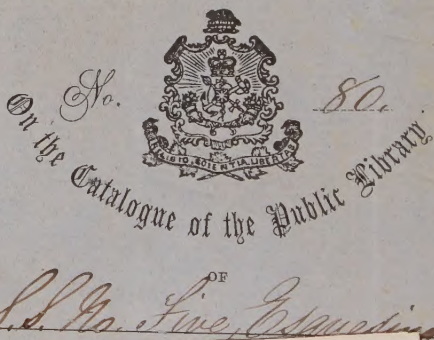 No. 80.
RELIGIO, SCIENTIA, LIBERTAS
On the Catalogue of the Public Library.
OF
S. S. No. Five, Esquesing